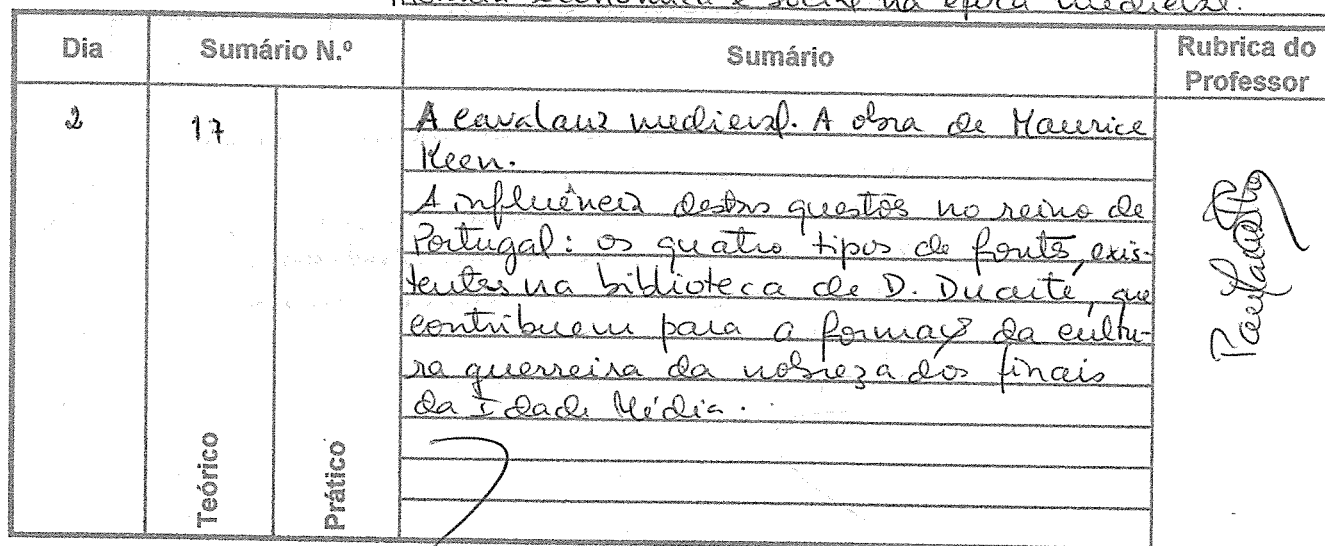 económica e social na época medieval.
Dia
Sumário N.º
Sumário
Rubrica do
Professor
2
17
A cavalaria medieval. A obra de Maurice
Keen.
A influência destas questões no reino de
Portugal: os quatro tipos de fontes, exis-
tentes na biblioteca de D. Duarte, que
contribuem para a formação da cultu-
ra guerreira da nobreza dos finais
da Idade Média.
Teórico
Prático